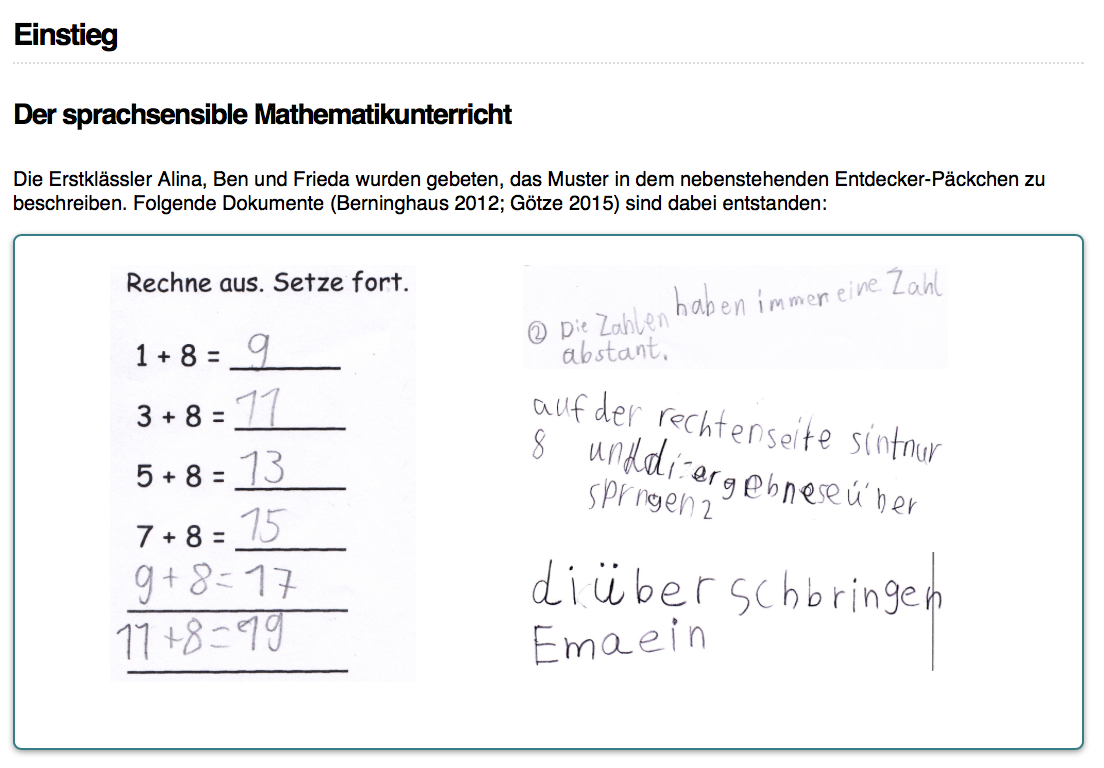 Einstieg
Der sprachsensible Mathematikunterricht
Die Erstklässler Alina, Ben und Frieda wurden gebeten, das Muster in dem nebenstehenden Entdecker-Päckchen zu
beschreiben. Folgende Dokumente (Berninghaus 2012; Götze 2015) sind dabei entstanden:
Rechne aus. Setze fort.
1 + 8 = 9
3 + 8 = 11
5 + 8 = 13
7 + 8 = 15
9 + 8 = 17
11 + 8 = 19
② Die Zahlen haben immer eine Zahl
abstant.
auf der rechtenseite sintnur
8 unddi ergebneseüber
sprngen 2
di über schbringen
Emaein